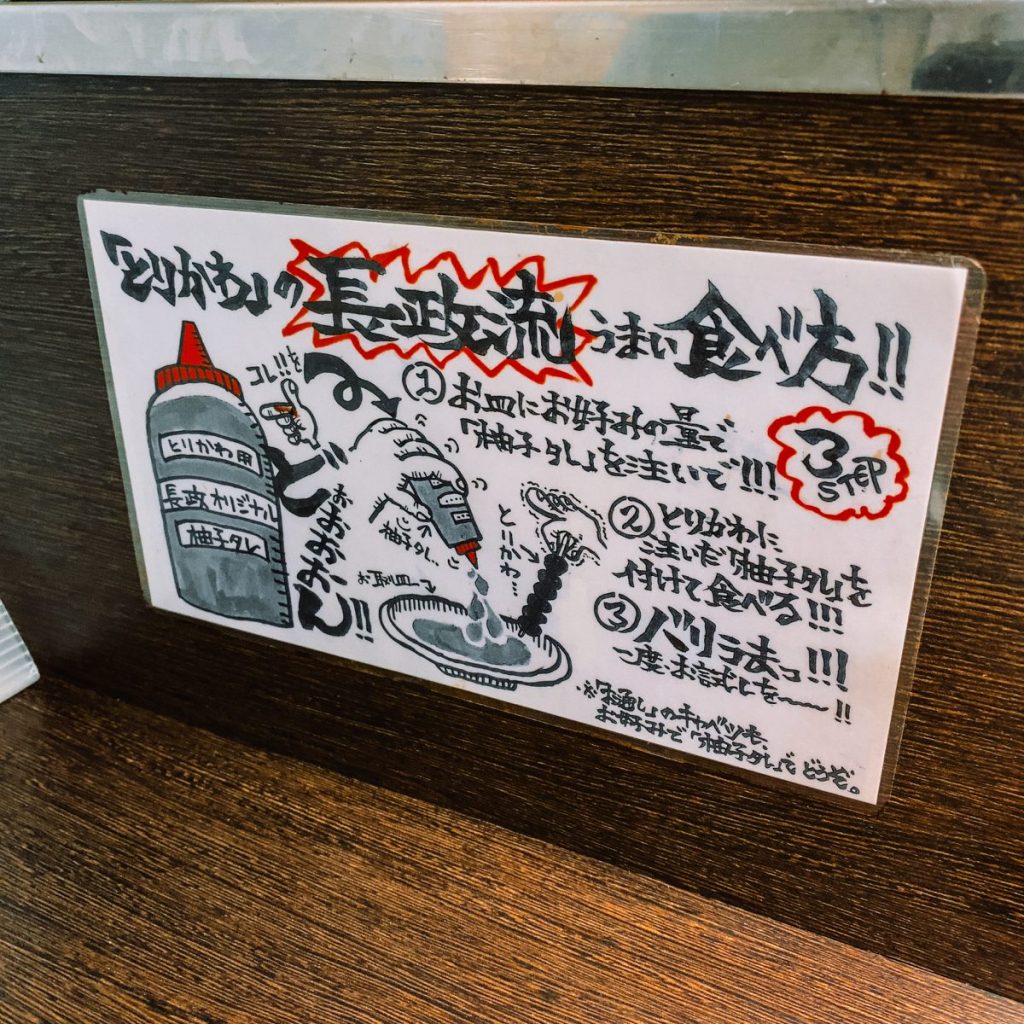 「とりかわ」の長政流うまい食べ方!!
3STEP
①お皿にお好みの量で
「柚子タレ」を注いで!!!
②とりかわに
注いだ「柚子タレ」を
付けて食べる!!!
③バリうまっ!!!
一度お試しを〜!!
※「お通し」のキャベツも、
お好みで「柚子タレ」でどうぞ。
コレ!!を
とりかわ用
長政オリジナル
柚子タレ
どぉぉぉん!!
柚子タレ
お取皿
とりかわ…